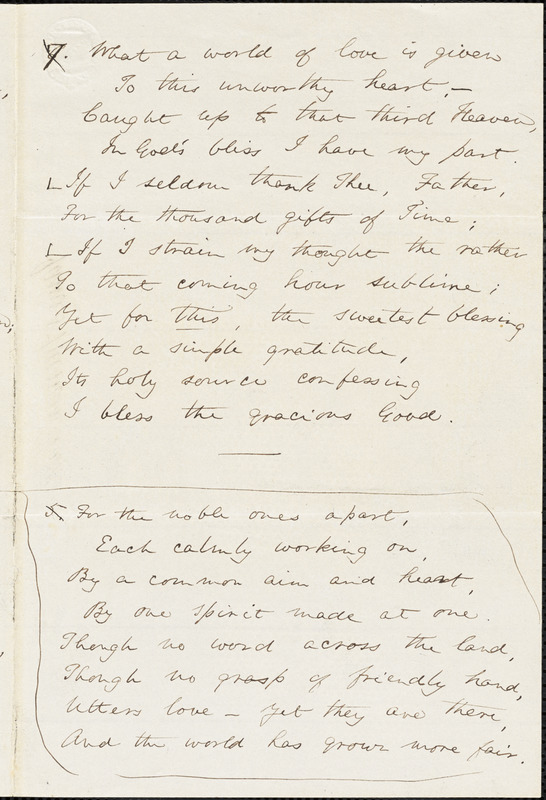 7. What a world of love is given
To this unworthy heart, —
Caught up to that third Heaven,
In God's bliss I have my part.
If I seldom thank Thee, Father,
For the thousand gifts of Time;
If I strain my thought the rather
To that coming hour sublime;
Yet for this, the sweetest blessing
With a simple gratitude,
Its holy source confessing
I bless the gracious Good.
5. For the noble ones apart,
Each calmly working on,
By a common aim and heart,
By one spirit made at one.
Though no word across the land,
Though no grasp of friendly hand,
Utters love — yet they are there,
And the world has grown more fair.